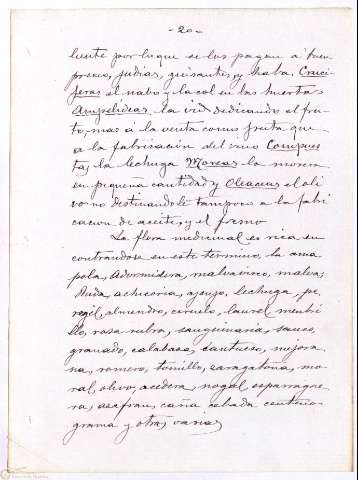 -20-
lente por lo que se los pagan á buen
precio, judias, guisantes, y haba, Cruci-
feras el nabo y la col en las huertas
Ampelideas la vid dedicando el fru-
to, mas á la venta como fruta que
a la fabricación del vino Compues-
tas, la lechuga Moreas la morera
en pequeña cantidad y Oleaceas el oli
vo no destinandole tampoco a la fabri
cacion de aceite, y el fresno
La flora medicinal es rica en
contrandose en este termino, la ama
pola, adormidera, malvavisco, malva,
Ruda, achicoria, ajenjo, lechuga, pe
regil, almendro, ciruelo, laurel membri
llo, rosa rubra, sanguinaria, sauco,
granado, calabaza, cantueso, mejora
na, romero, tomillo, zaragatona, mo
ral, olivo, acedera, nogal, esparrague
ra, azafran, caña cebada centeno
grama y otras varias